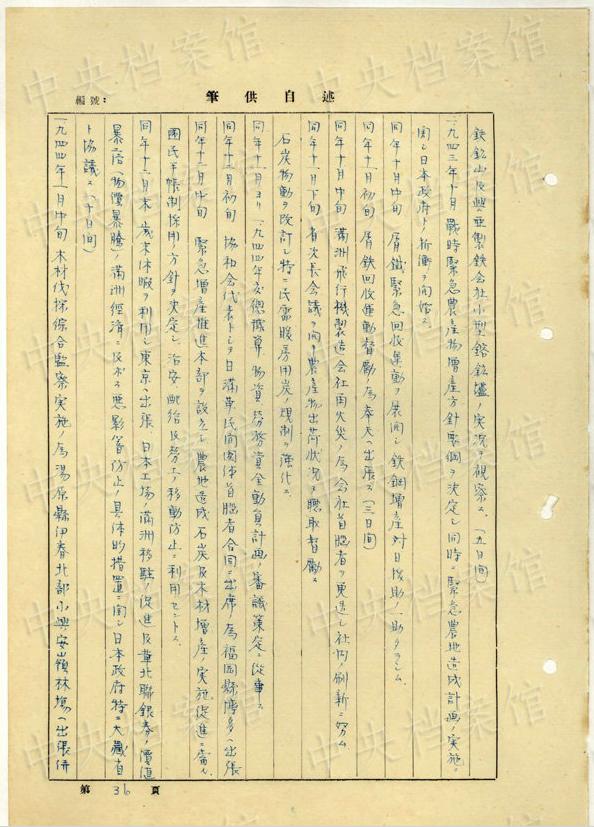 筆供自述
編號:
鉄鉱山及興亜製鉄会社小型鎔鉱爐ノ実況ヲ視察ス。(九日間)
一九四三年十月 戰時緊急農産物増産方針要綱ヲ決定シ同時ニ緊急農地造成計画ノ実施ニ
関シ日本政府ト折衝ヲ開始ス
同年十月中旬 屑鐵緊急回収運動ヲ展開シ鉄鋼増産対日援助ノ一助タラシム
同年十一月初旬 屑鉄回収運動督励ノ為奉天ヘ出張ス(三日間)
同年十一月中旬 滿洲飛行機製造会社内火災ノ為会社首脳者ヲ更迭シ社内ノ刷新ニ努ム
同年十一月下旬 省次長会議ヲ開キ農産物出荷状況ヲ聴取督励ス
石炭物動ヲ改訂シ特ニ民需暖房用炭ノ規制ヲ強化ス
同年十一月ヨリ一九四四年度 物資労務資金動員計画ノ審議策定ニ従事ス
同年十二月初旬 協和会代表トシテ日滿華民間団体首脳者合同ニ出席ノ為福岡縣博多ヘ出張
同年十二月中旬 緊急増産推進本部ヲ設立シ農地造成石炭及木材増産ノ実施促進ニ当ル
国民手帳制採用ノ方針ヲ決定シ治安、配給及労工ノ移動防止ニ利用セントス
同年十二月末 歳末休暇ヲ利用シ東京ヘ出張 日本工場ノ滿洲移駐ノ促進及華北聯銀券ノ價値
暴落(物價暴騰)ノ滿洲經済ニ及ボス悪影響防止ノ具体的措置ニ関シ日本政府特ニ大藏省
ト協議ス(十日間)
一九四四年一月中旬 木材伐採綜合監察実施ノ為湯原縣伊春北部小興安嶺林場ヘ出張併
第36頁
中央档案馆